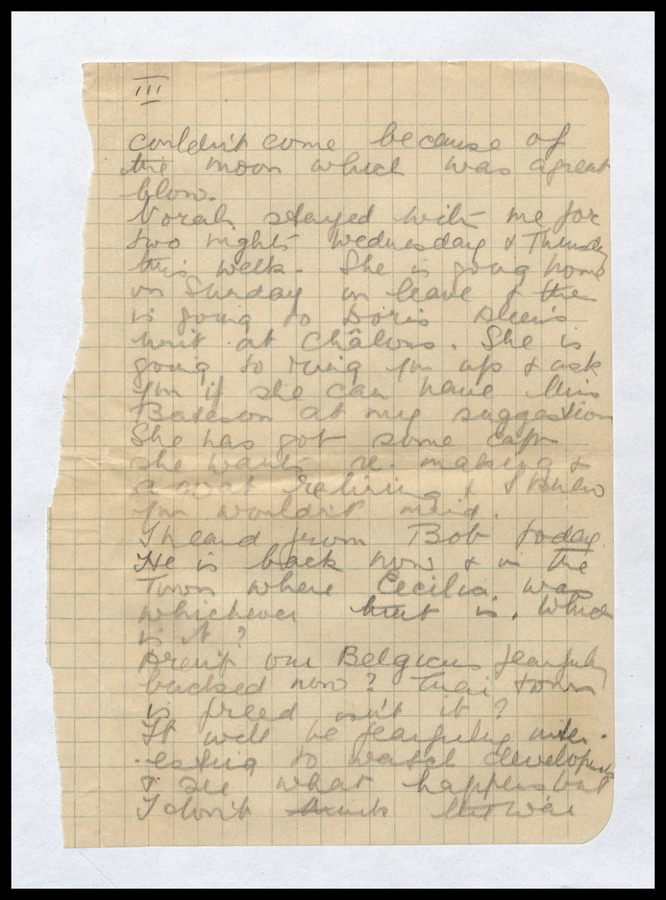 III
couldn't come because of
the moon which was a great
blow.
Norah stayed with me for
two nights Wednesday & Thursday
this week. She is going home
on Sunday on leave & then
is going to Doris
unit at Châlons. She is
going to ring you up & ask
you if she can have Miss
Bateson at my suggestion
She has got some caps
she wants re. making &
a coat relining & I knew
you wouldn't mind.
I heard from Bob today
He is back now & in the
Town where Cecilia was
whichever that is. Which
is it?
Aren't our Belgians fearfully
bucked now? Their town
is freed isn't it?
It will be fearfully inter-
-esting to watch developments
& see what happens but
I don't think the war